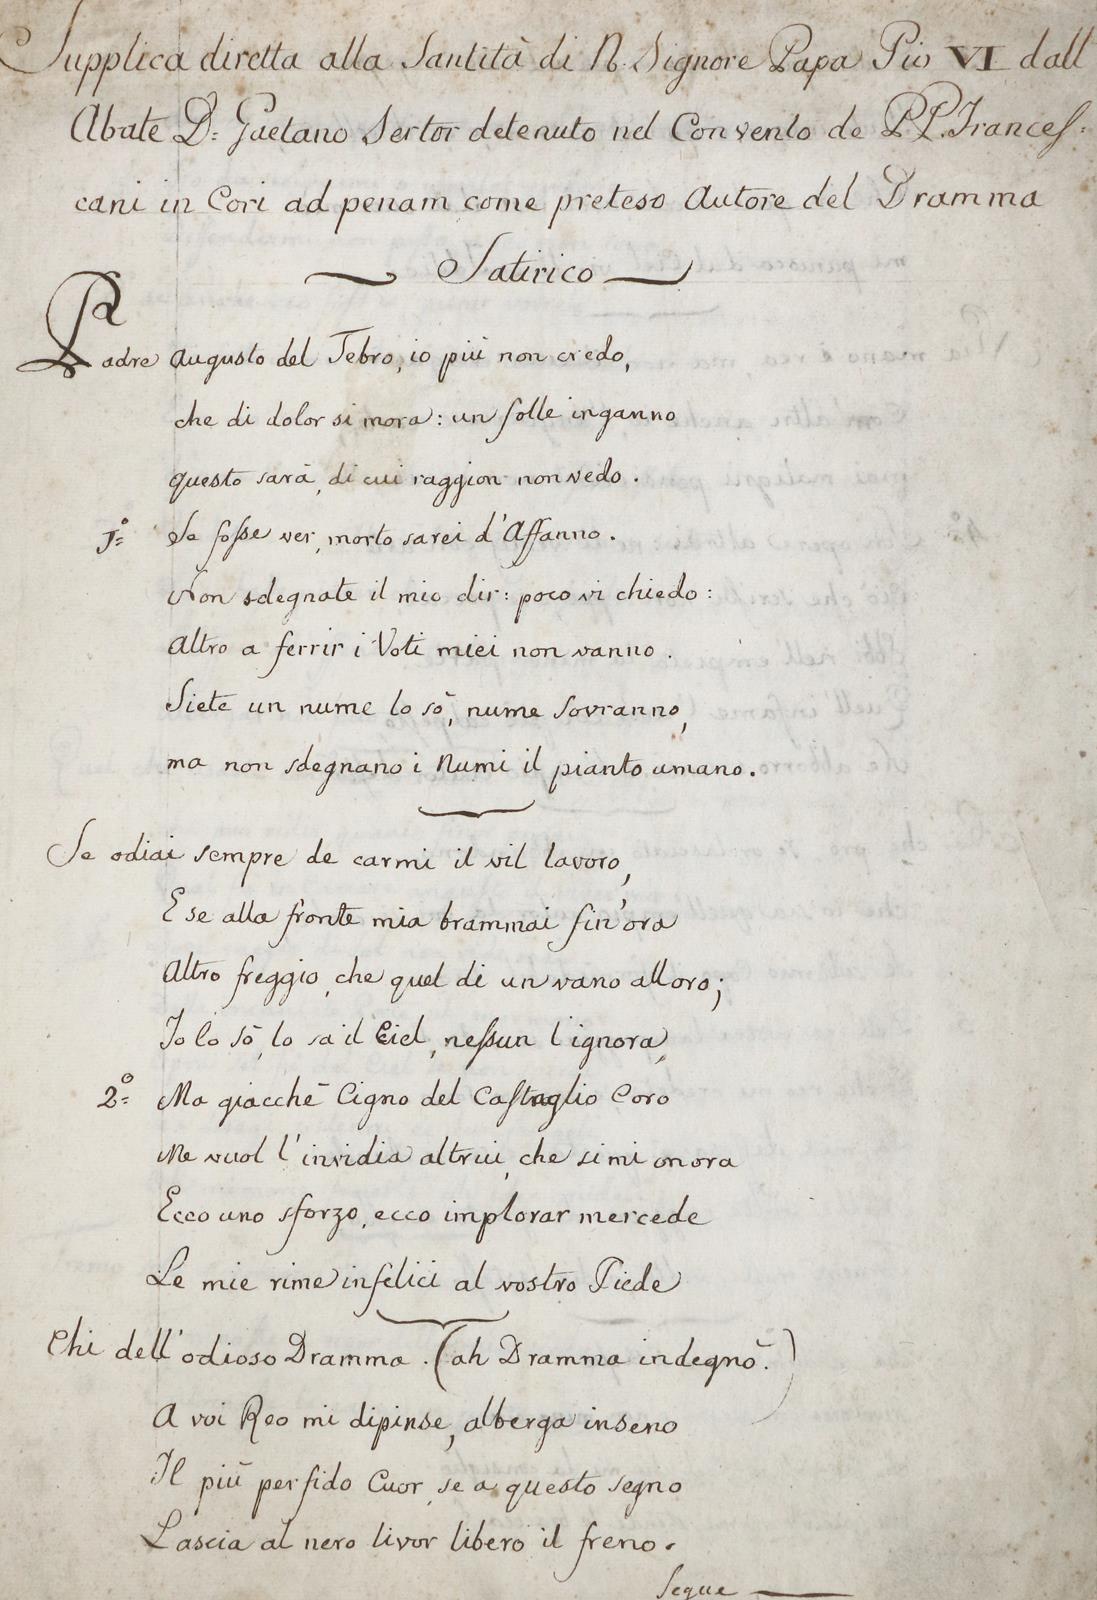 Supplica diretta alla Santità di N. Signore Papa Pio VI dall
Abate D: Gaetano Sertor detenuto nel Convento de PP. Frances:
cani in Cori ad penam come preteso Autore del Dramma
Satirico
Padre Augusto del Tebro, io più non credo,
che di dolor si mora: un folle inganno
questo sarà, di cui raggion non vedo.
1º Se fosse ver, morto sarei d'Affanno.
Non sdegnate il mio dir: poco vi chiedo:
Altro a ferrir i Voti miei non vanno.
Siete un nume lo sò, nume Sovranno,
ma non sdegnano i Numi il pianto umano.
Se odiai sempre de carmi il vil lavoro,
E se alla fronte mia brammai fin'ora
Altro freggio, che quel di un vano alloro;
Io lo sò, lo sa il Ciel, nessun l'ignora,
2º Ma giacchè Cigno del Castaglio Coro
Me vuol l'invidia altrui, che si mi onora
Ecco uno sforzo, ecco implorar mercede
Le mie rime infelici al vostro Piede
Chi dell'odioso Dramma. (ah Dramma indegno.)
A voi Reo mi dipinse, alberga in seno
Il più perfido Cuor, se a questo segno
Lascia al nero livor libero il freno.
Segue